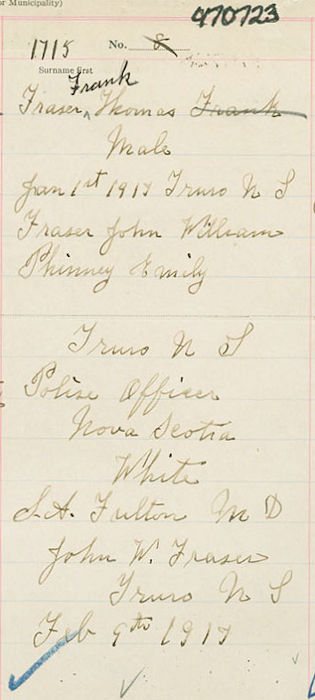 or Municipality)
470723
1715 No. 8
Surname first
Frank
Fraser, Thomas Frank
Male
Jan 1st 1917 Truro N S
Fraser John William
Phinney Emily
Truro N S
Polise Officer
Nova Scotia
White
S.A. Fulton M D
John W. Fraser
Truro N S
Feb 9th 1917